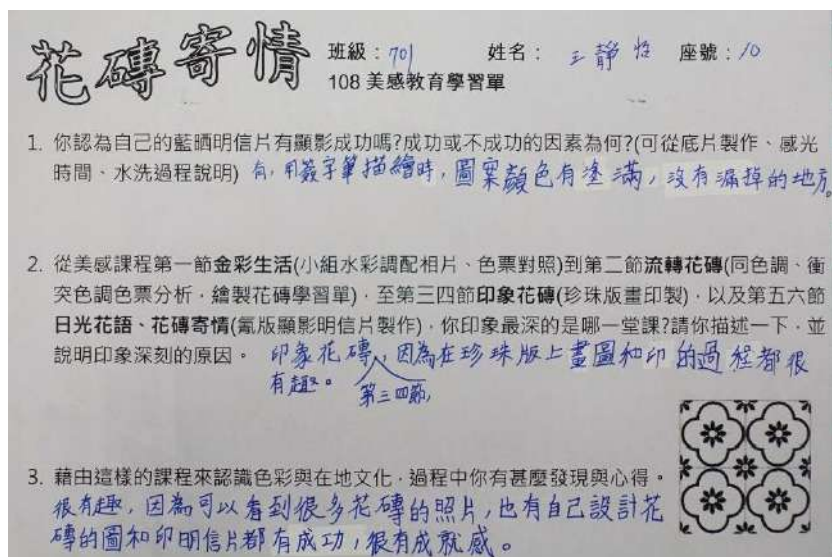 花磚寄情 班級：701 姓名：王靜怡 座號：10
108 美感教育學習單
1. 你認為自己的藍晒明信片有顯影成功嗎?成功或不成功的因素為何?(可從底片製作、感光
時間、水洗過程說明) 有，用簽字筆描繪時，圖案顏色有塗滿，沒有漏掉的地方。
2. 從美感課程第一節金彩生活(小組水彩調配相片、色票對照)到第二節流轉花磚(同色調、衝
突色調色票分析，繪製花磚學習單)，至第三四節印象花磚(珍珠版畫印製)，以及第五六節
日光花語、花磚寄情(氰版顯影明信片製作)，你印象最深的是哪一堂課?請你描述一下，並
說明印象深刻的原因。 印象花磚，因為在珍珠版上畫圖和印的過程都很
有趣。 第三四節，
3. 藉由這樣的課程來認識色彩與在地文化，過程中你有甚麼發現與心得。
很有趣，因為可以看到很多花磚的照片，也有自己設計花
磚的圖和印明信片都有成功，很有成就感。